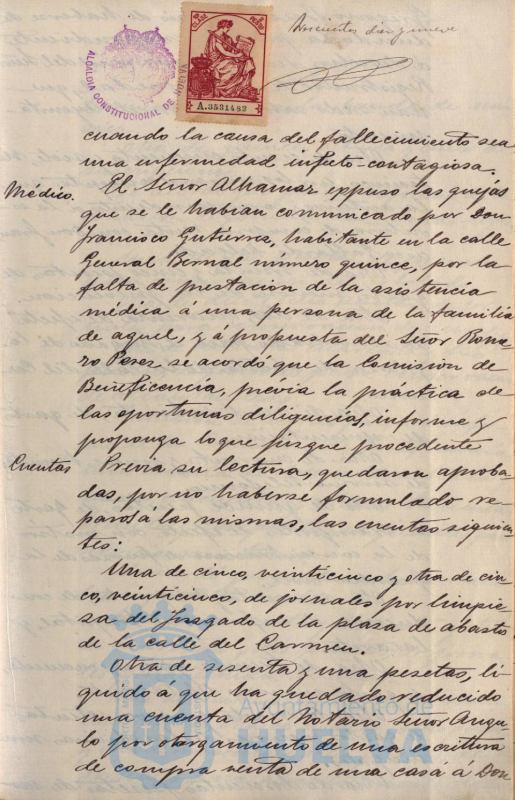 Doscientos diez y nueve
ALCALDIA CONSTITUCIONAL DE
1ª CLASE 1 PESETA
A.3531482
cuando la causa del fallecimiento sea
una enfermedad infecto-contagiosa.
Médico. El Señor Alhamar expuso las quejas
que se le habian comunicado por Don
Francisco Gutiérrez, habitante en la calle
General Bernal número quince, por la
falta de prestacion de la asistencia
médica á una persona de la familia
de aquel, y á propuesta del Señor Rome-
ro Perez se acordó que la Comision de
Beneficencia, prévia la práctica de
las oportunas diligencias, informe y
proponga lo que juzgue procedente
Cuentas Previa su lectura, quedaron aproba-
das, por no haberse formulado re-
paros á las mismas, las cuentas siguien-
tes:
Una de cinco, veinticinco y otra de cin-
co, veinticinco, de jornales por limpie-
za del Juzgado de la plaza de abastos
de la calle del Carmen.
Otra de sesenta y una pesetas, lí-
quido á que ha quedado reducido
una cuenta del Notario Señor Angu-
lo por otorgamiento de una escritura
de compra venta de una casa á Don
Ayuntamiento de
HUELVA